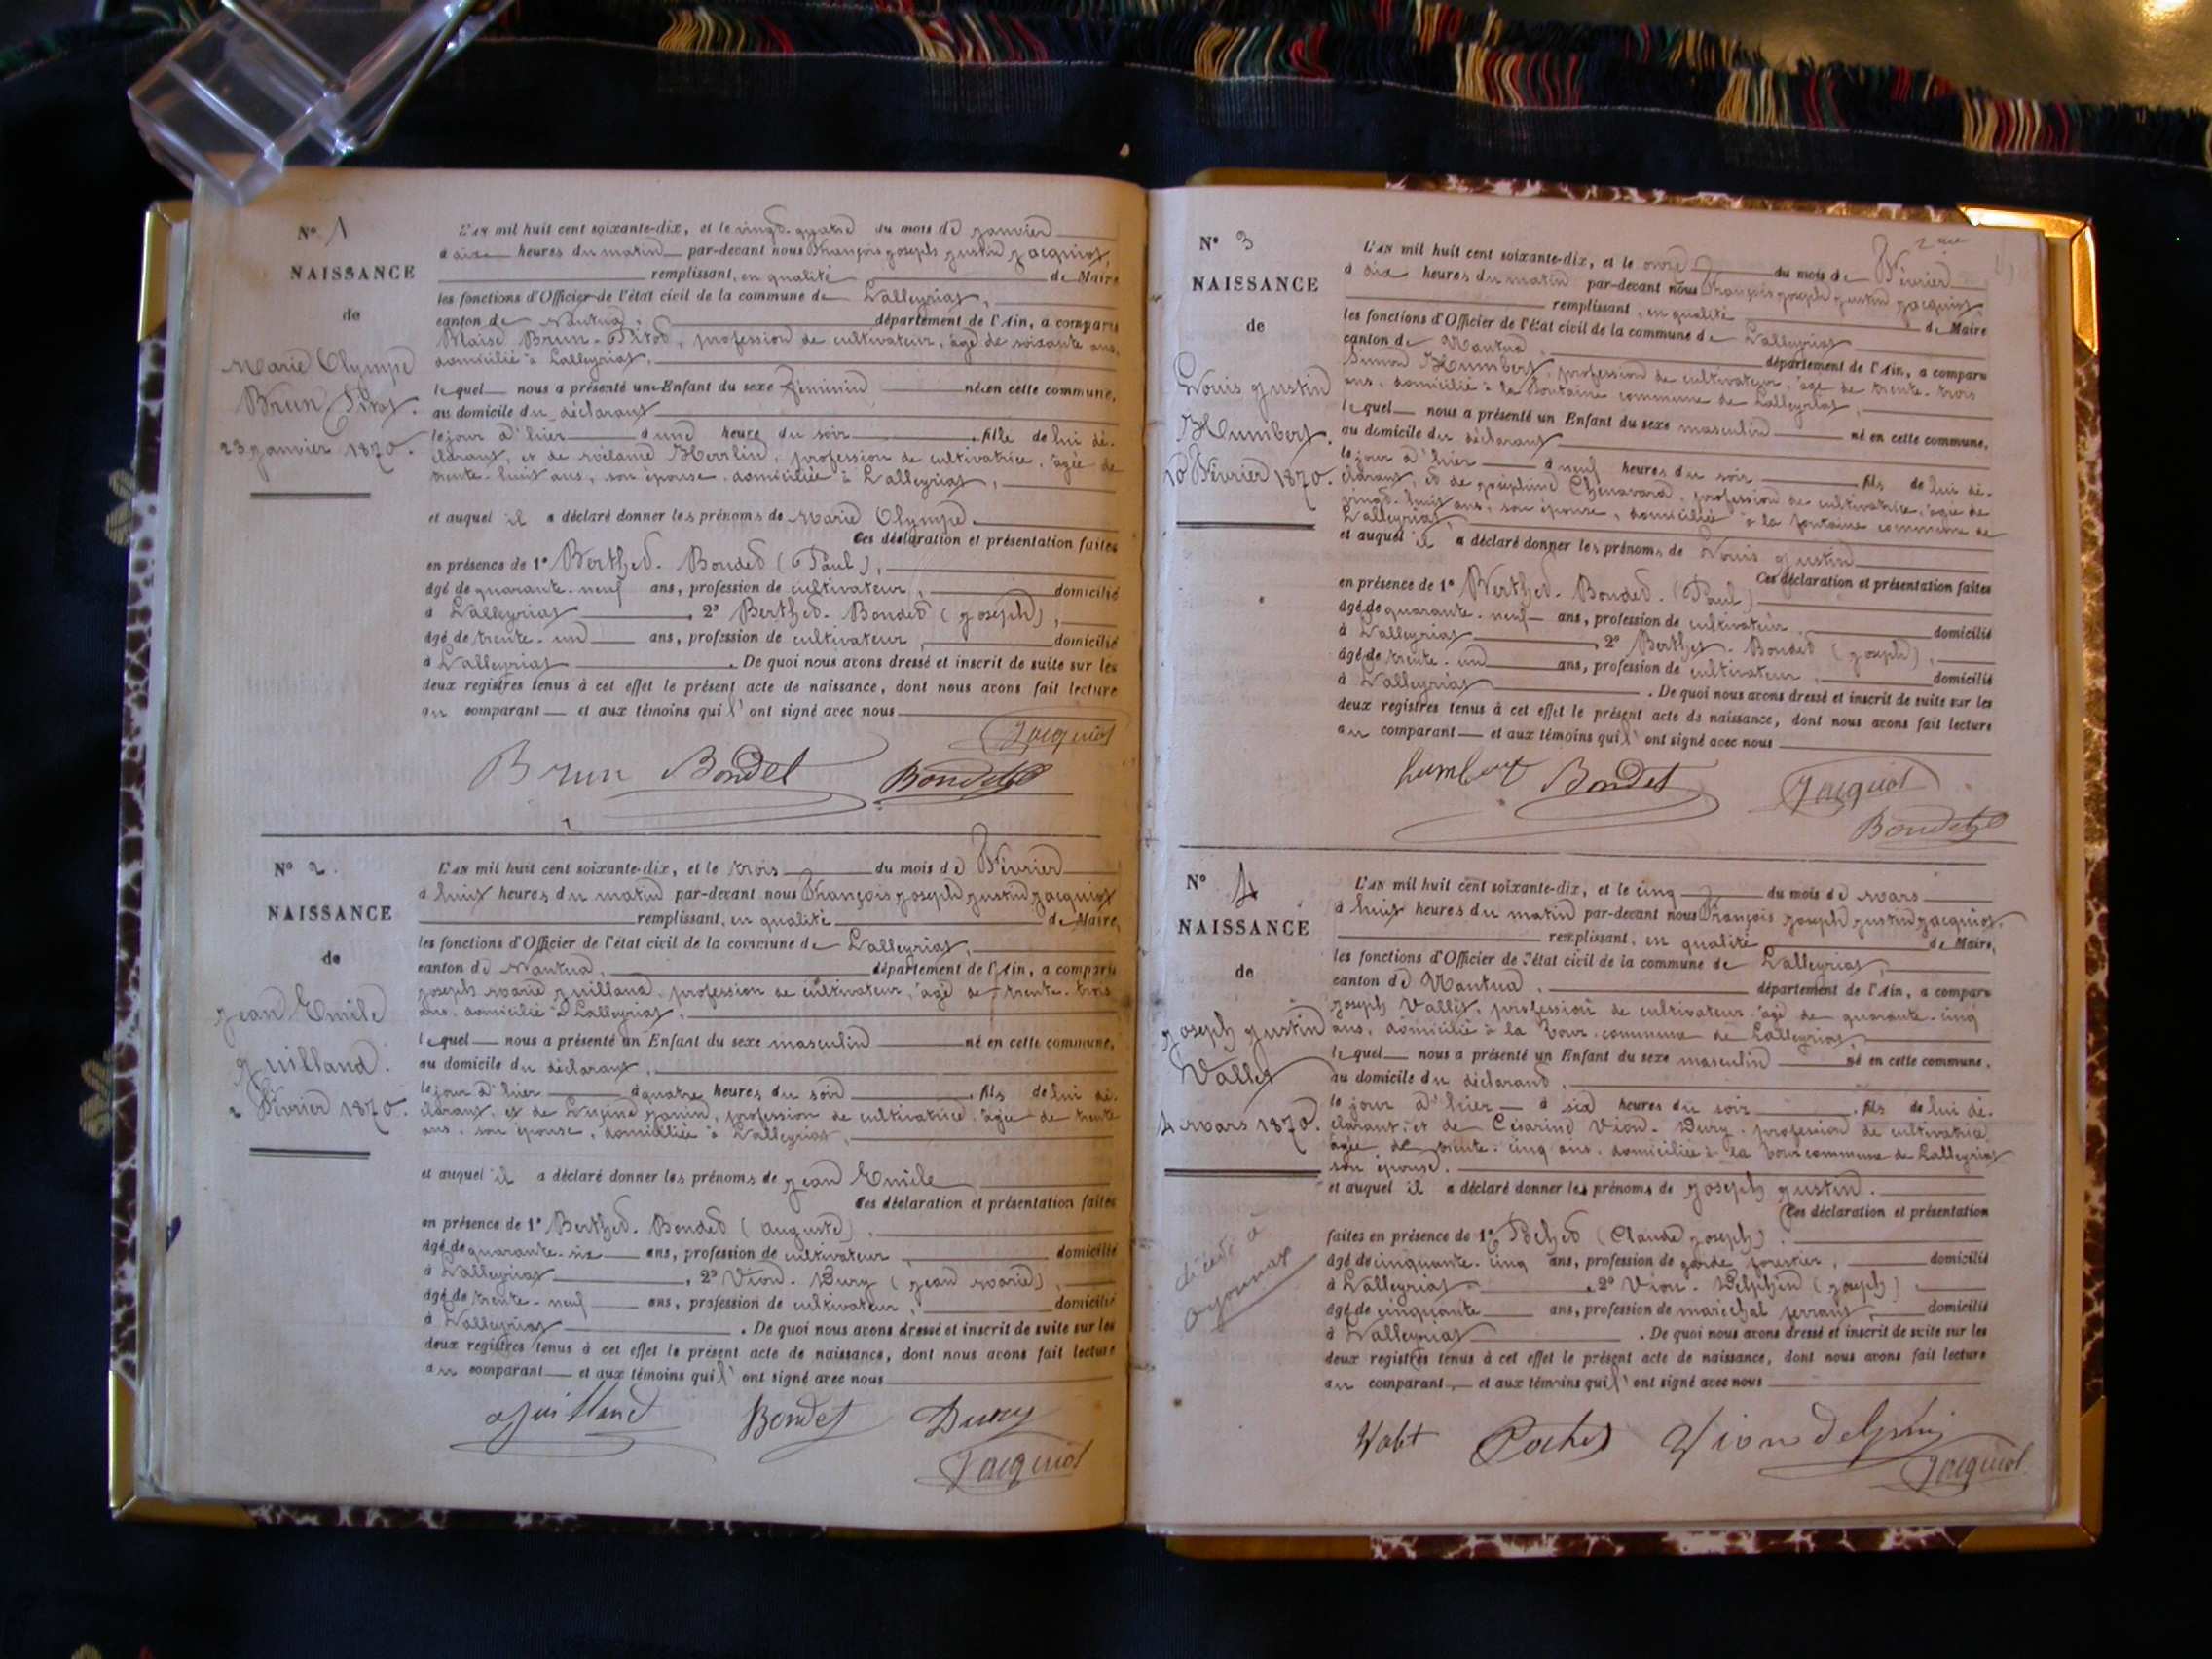 N° 1
NAISSANCE
de
Marie Olympe
Brun Pitod.
23 janvier 1870.
L'AN mil huit cent soixante-dix, et le vingt-quatre du mois de janvier
à dix heures du matin par-devant nous François joseph justin jacquiot,
remplissant, en qualité de Maire
les fonctions d'Officier de l'état civil de la commune de Lalleyriat,
canton de Nantua, département de l'Ain, a comparu
Blaise Brun-Pitod, profession de cultivateur, âgé de soixante ans,
domicilié à Lalleyriat,
lequel nous a présenté un Enfant du sexe féminin né en cette commune,
au domicile du déclarant
le jour d'hier à une heure du soir, fille de lui dé-
clarant, et de Mélanie, profession de cultivatrice, âgée de
trente-huit ans, son épouse, domiciliée à Lalleyriat,
et auquel il a déclaré donner les prénoms de Marie Olympe.
Ces déclaration et présentation faites
en présence de 1° Berthet-Bondet (Paul),
âgé de quarante-neuf ans, profession de cultivateur, domicilié
à Lalleyriat, 2° Berthet-Bondet (joseph),
âgé de trente-un ans, profession de cultivateur, domicilié
à Lalleyriat. De quoi nous avons dressé et inscrit de suite sur les
deux registres tenus à cet effet le présent acte de naissance, dont nous avons fait lecture
au comparant et aux témoins qui l'ont signé avec nous
Jacquiot
Brun Bondet Bondet
N° 2.
NAISSANCE
de
jean Emile
guilland.
2 Février 1870.
L'AN mil huit cent soixante-dix, et le trois du mois de Février
à huit heures du matin par-devant nous François joseph justin jacquiot
remplissant, en qualité de Maire,
les fonctions d'Officier de l'état civil de la commune de Lalleyriat,
canton de Nantua, département de l'Ain, a comparu
joseph marie guilland, profession de cultivateur, âgé de trente-trois
ans, domicilié à Lalleyriat,
lequel nous a présenté un Enfant du sexe masculin né en cette commune,
au domicile du déclarant,
le jour d'hier à quatre heures du soir, fils de lui dé-
clarant, et de janin, profession de cultivatrice, âgée de trente
ans, son épouse, domiciliée à Lalleyriat,
et auquel il a déclaré donner les prénoms de jean Emile
Ces déclaration et présentation faites
en présence de 1° Berthet-Bondet (auguste),
âgé de quarante-six ans, profession de cultivateur, domicilié
à Lalleyriat, 2° Vion-Dury (jean marie),
âgé de trente-neuf ans, profession de cultivateur, domicilié
à Lalleyriat. De quoi nous avons dressé et inscrit de suite sur les
deux registres tenus à cet effet le présent acte de naissance, dont nous avons fait lecture
au comparant et aux témoins qui l'ont signé avec nous
guilland Bondet Dury
Jacquiot
N° 3
NAISSANCE
de
Louis justin
Humbert.
10 Février 1870.
L'AN mil huit cent soixante-dix, et le onze du mois de Février
à dix heures du matin par-devant nous François joseph justin jacquiot,
remplissant, en qualité de Maire
les fonctions d'Officier de l'état civil de la commune de Lalleyriat
canton de Nantua, département de l'Ain, a comparu
Simon Humbert, profession de cultivateur, âgé de trente-trois
ans, domicilié à la fontaine commune de Lalleyriat,
lequel nous a présenté un Enfant du sexe masculin né en cette commune,
au domicile du déclarant
le jour d'hier à neuf heures du soir fils de lui dé-
clarant, et de joséphine Chenavard, profession de cultivatrice, âgée de
vingt-huit ans, son épouse, domiciliée à la fontaine commune de
Lalleyriat,
et auquel il a déclaré donner les prénoms de Louis justin
Ces déclaration et présentation faites
en présence de 1° Berthet-Bondet (Paul)
âgé de quarante-neuf ans, profession de cultivateur, domicilié
à Lalleyriat, 2° Berthet-Bondet (joseph),
âgé de trente-un ans, profession de cultivateur, domicilié
à Lalleyriat. De quoi nous avons dressé et inscrit de suite sur les
deux registres tenus à cet effet le présent acte de naissance, dont nous avons fait lecture
au comparant et aux témoins qui l'ont signé avec nous
humbert Bondet Jacquiot
Bondet
N° 4
NAISSANCE
de
joseph justin
Vallet
4 mars 1870.
décédé à
oyonnax
L'AN mil huit cent soixante-dix, et le cinq du mois de mars
à huit heures du matin par-devant nous François joseph justin jacquiot,
remplissant, en qualité de Maire,
les fonctions d'Officier de l'état civil de la commune de Lalleyriat,
canton de Nantua, département de l'Ain, a comparu
joseph Vallet, profession de cultivateur, âgé de quarante-cinq
ans, domicilié à la Tour commune de Lalleyriat,
lequel nous a présenté un Enfant du sexe masculin né en cette commune,
au domicile du déclarant,
le jour d'hier à six heures du soir, fils de lui dé-
clarant, et de Césarine Vion-Dury, profession de cultivatrice,
âgée de trente-cinq ans, domiciliée à la Tour commune de Lalleyriat
son épouse.
et auquel il a déclaré donner les prénoms de joseph justin.
Ces déclaration et présentation
faites en présence de 1° Pochet (Claude joseph),
âgé de cinquante-cinq ans, profession de garde forestier, domicilié
à Lalleyriat, 2° Vion-Delphin (joseph)
âgé de cinquante ans, profession de maréchal ferrant, domicilié
à Lalleyriat. De quoi nous avons dressé et inscrit de suite sur les
deux registres tenus à cet effet le présent acte de naissance, dont nous avons fait lecture
au comparant, et aux témoins qui l'ont signé avec nous
Pochet Vion delphin
Jacquiot